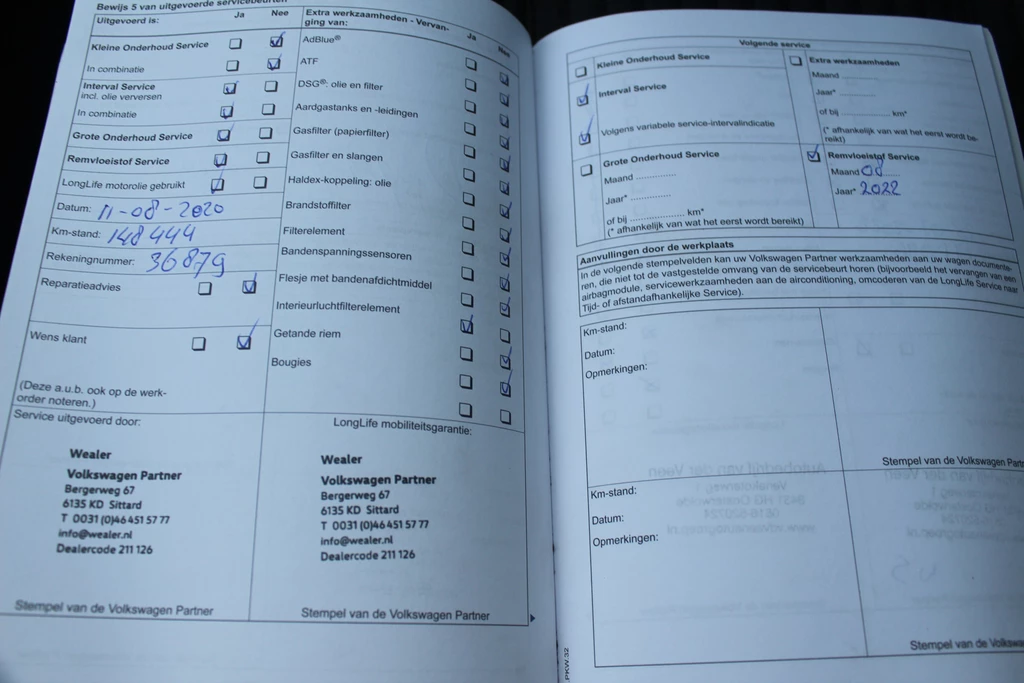 Bewijs 5 van uitgevoerde servicebeurten
Uitgevoerd is:
Ja
Nee
Kleine Onderhoud Service
In combinatie
Interval Service
incl. olie verversen
In combinatie
Grote Onderhoud Service
Remvloeistof Service
LongLife motorolie gebruikt
Datum: 11-08-2020
Km-stand: 148444
Rekeningnummer: 36879
Reparatieadvies
Wens klant
(Deze a.u.b. ook op de werk-
order noteren.)
Extra werkzaamheden - Vervan-
ging van:
Ja
Nee
AdBlue®
ATF
DSG®: olie en filter
Aardgastanks en -leidingen
Gasfilter (papierfilter)
Gasfilter en slangen
Haldex-koppeling: olie
Brandstoffilter
Filterelement
Bandenspanningssensoren
Flesje met bandenafdichtmiddel
Interieurluchtfilterelement
Getande riem
Bougies
Service uitgevoerd door:
Wealer
Volkswagen Partner
Bergerweg 67
6135 KD Sittard
T 0031 (0)46 451 57 77
info@wealer.nl
Dealercode 211 126
Stempel van de Volkswagen Partner
LongLife mobiliteitsgarantie:
Wealer
Volkswagen Partner
Bergerweg 67
6135 KD Sittard
T 0031 (0)46 451 57 77
info@wealer.nl
Dealercode 211 126
Stempel van de Volkswagen Partner
Volgende service
Kleine Onderhoud Service
Interval Service
Volgens variabele service-intervalindicatie
Grote Onderhoud Service
Maand ..............
Jaar* ..............
of bij .................... km*
(* afhankelijk van wat het eerst wordt bereikt)
Extra werkzaamheden
Maand ..............
Jaar* ..............
of bij .................... km*
(* afhankelijk van wat het eerst wordt be-
reikt)
Remvloeistof Service
Maand 08
Jaar* 2022
Aanvullingen door de werkplaats
In de volgende stempelvelden kan uw Volkswagen Partner werkzaamheden aan uw wagen documente-
ren, die niet tot de vastgestelde omvang van de servicebeurt horen (bijvoorbeeld het vervangen van een
airbagmodule, servicewerkzaamheden aan de airconditioning, omcoderen van de LongLife Service naar
Tijd- of afstandafhankelijke Service).
Km-stand:
Datum:
Opmerkingen:
Stempel van de Volkswagen Partn
Km-stand:
Datum:
Opmerkingen:
Stempel van de Volkswa
PKW.32